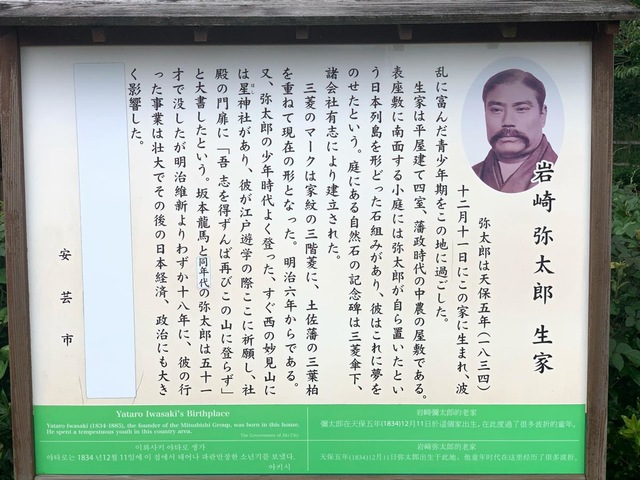 岩崎 弥太郎 生家
弥太郎は天保五年（一八三四）
十二月十一日にこの家に生まれ、波
乱に富んだ青少年期をこの地に過ごした。
生家は平屋建て四室、藩政時代の中農の屋敷である。
表座敷に南面する小庭には弥太郎が自ら置いたとい
う日本列島を形どった石組みがあり、彼はこれに夢を
のせたという。庭にある自然石の記念碑は三菱傘下、
諸会社有志により建立された。
三菱のマークは家紋の三階菱に、土佐藩の三葉柏
を重ねて現在の形となった。明治六年からである。
又、弥太郎の少年時代よく登った、すぐ西の妙見山に
は星神社があり、彼が江戸遊学の際ここに祈願し、社
殿の門扉に「吾 志を得ずんば再びこの山に登らず」
と大書したという。坂本龍馬と同年代の弥太郎は五十一
才で没したが明治維新よりわずか十八年に、彼の行
った事業は壮大でその後の日本経済、政治にも大き
く影響した。
安芸市
Yataro Iwasaki's Birthplace
Yataro Iwasaki (1834-1885), the founder of the Mitsubishi Group, was born in this house.
He spent a tempestuous youth in this country area.
The Government of Aki City
岩崎彌太郎的老家
彌太郎在天保五年(1834)12月11日於這個家出生，在此度過了很多波折的童年。
이와사키 야타로 생가
야타로는 1834년12월 11일에 이 집에서 태어나 파란만장한 소년기를 보냈다.
아키시
岩崎弥太郎的老家
天保五年(1834)12月11日弥太郎出生于此地，他童年时代在这里经历了很多波折。